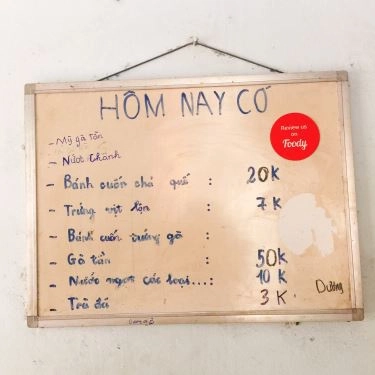 HÔM NAY CÓ
Review us
on
Foody
- Mỳ gà tần
- Nước chanh
- Bánh cuốn chả quế : 20K
- Trứng vịt lộn : 7K
- Bánh cuốn trứng gà :
- Gà tần : 50K
- Nước ngọt các loại...: 10K
- Trà đá 3K
Dương